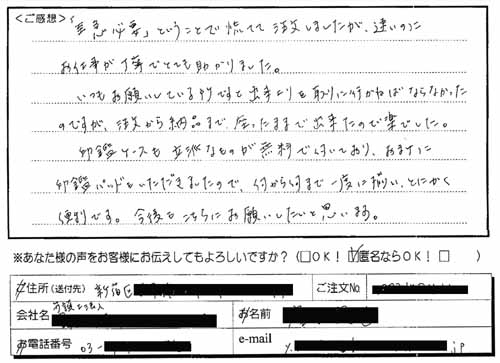 <ご感想>
「至急必要」ということで慌てて注文しましたが、速いのに
お仕事が丁寧でとても助かりました。
いつもお願いしている所ですと出来上りを取りに行かねばならなかった
のですが、注文から納品まで、座ったままで出来たので楽でした。
印鑑ケースも立派なものが無料で付いており、おまけに
印鑑パッドもいただきましたので、何から何まで一度に揃い、とにかく
便利です。今後もこちらにお願いしたいと思います。
※あなた様の声をお客様にお伝えしてもよろしいですか?(□OK! ☑匿名ならOK!)
ご住所(送付先) 新宿区 ご注文No
会社名 お名前
お電話番号 03- e-mail .jp